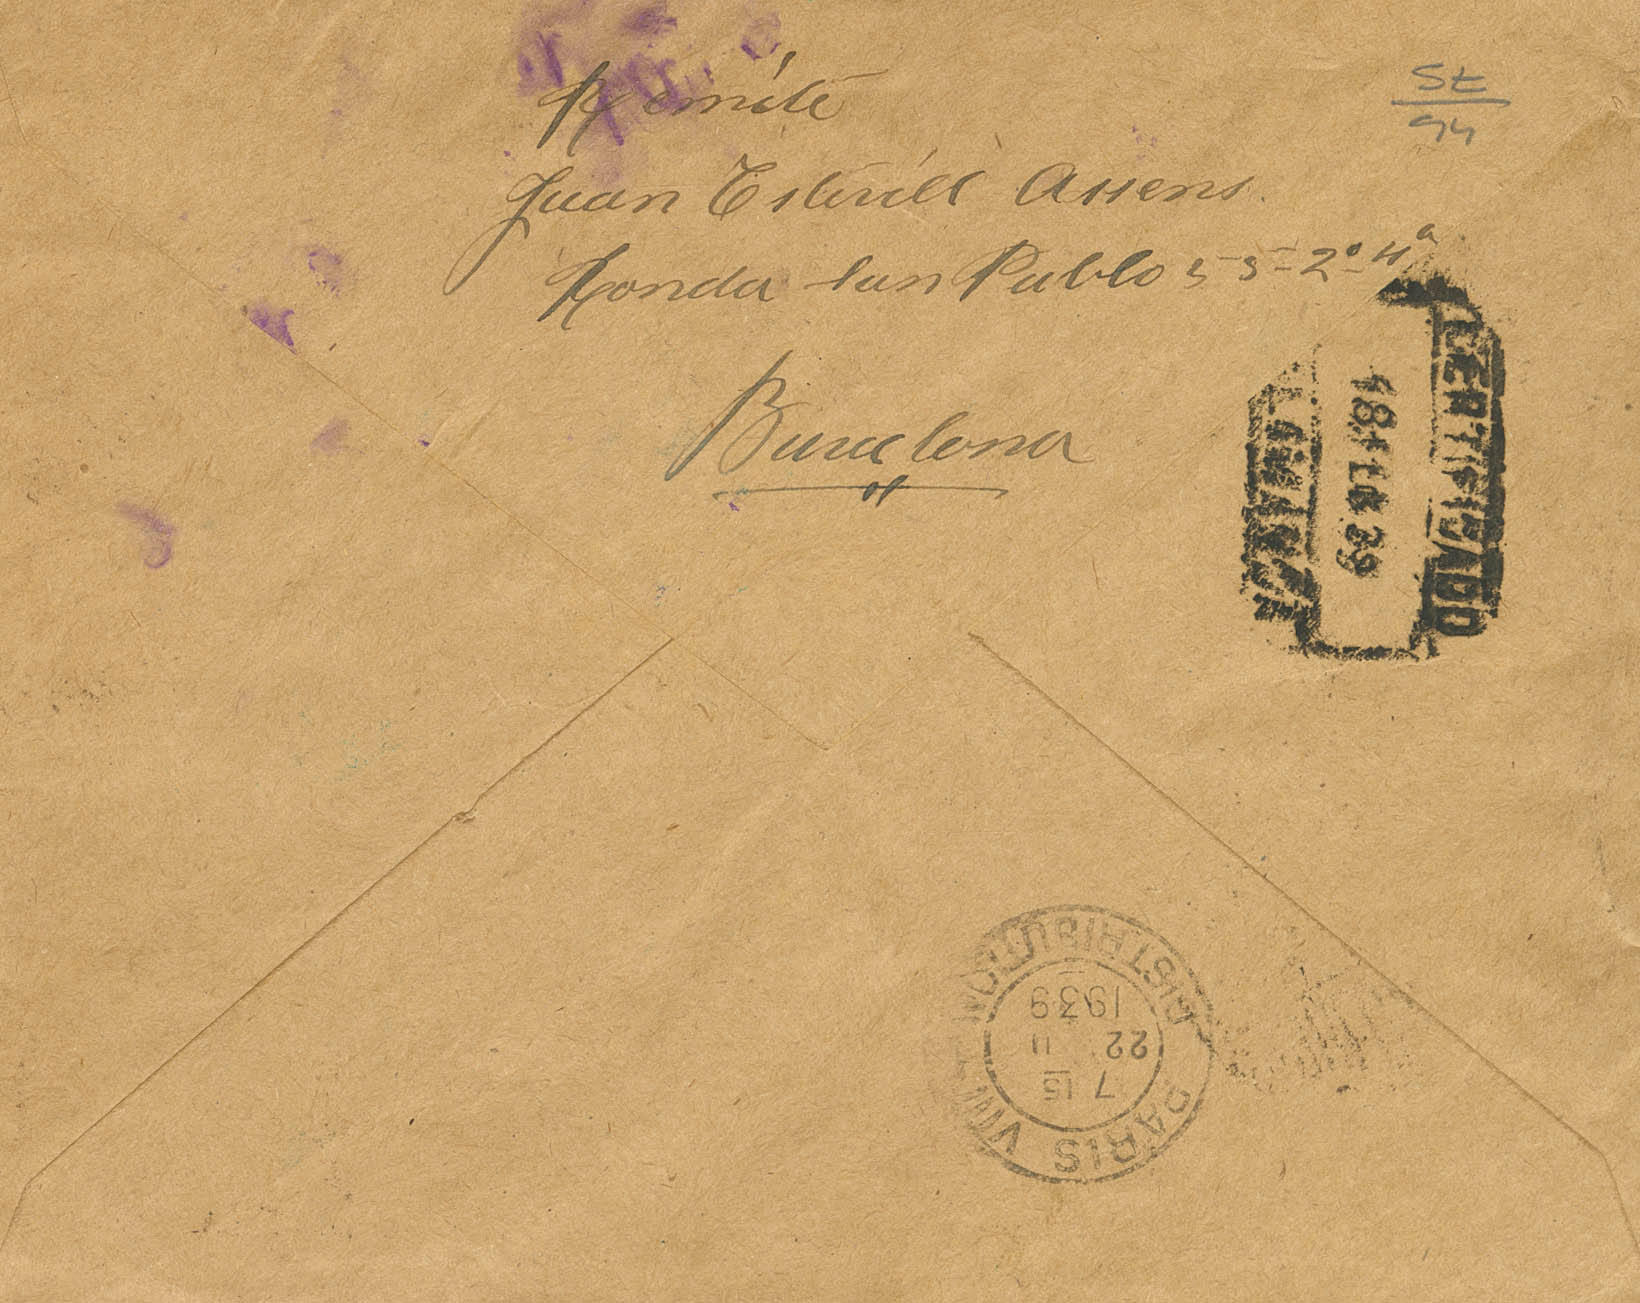 Remite
St
94
Juan Estivill Assens.
Ronda San Pablo 55-2º 4ª
Barcelona
CERTIFICADO
39
PARIS VIII
7 15
22 11
1939
DISTRIBUTION